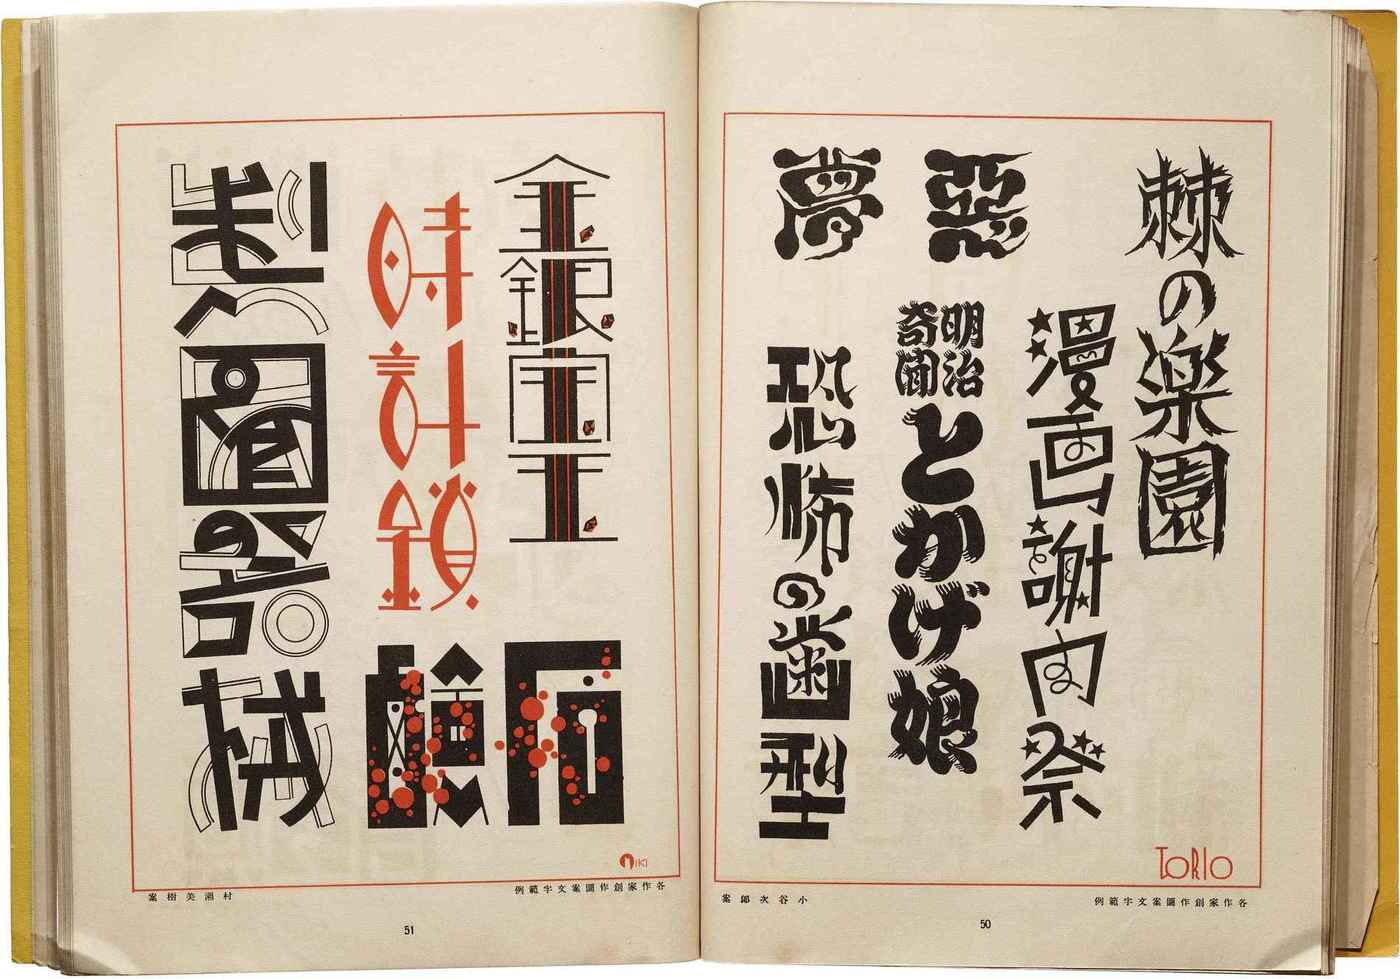 棘の楽園
漫画謝肉祭
惡夢
明治
奇聞
とかげ娘
恐怖の歯型
TORIO
各作家創作圖案文字範例
小谷次郎案
50
金銀宝玉
石鹸
時計鎖
製圖器械
MIKI
各作家創作圖案文字範例
村瀬美樹案
51